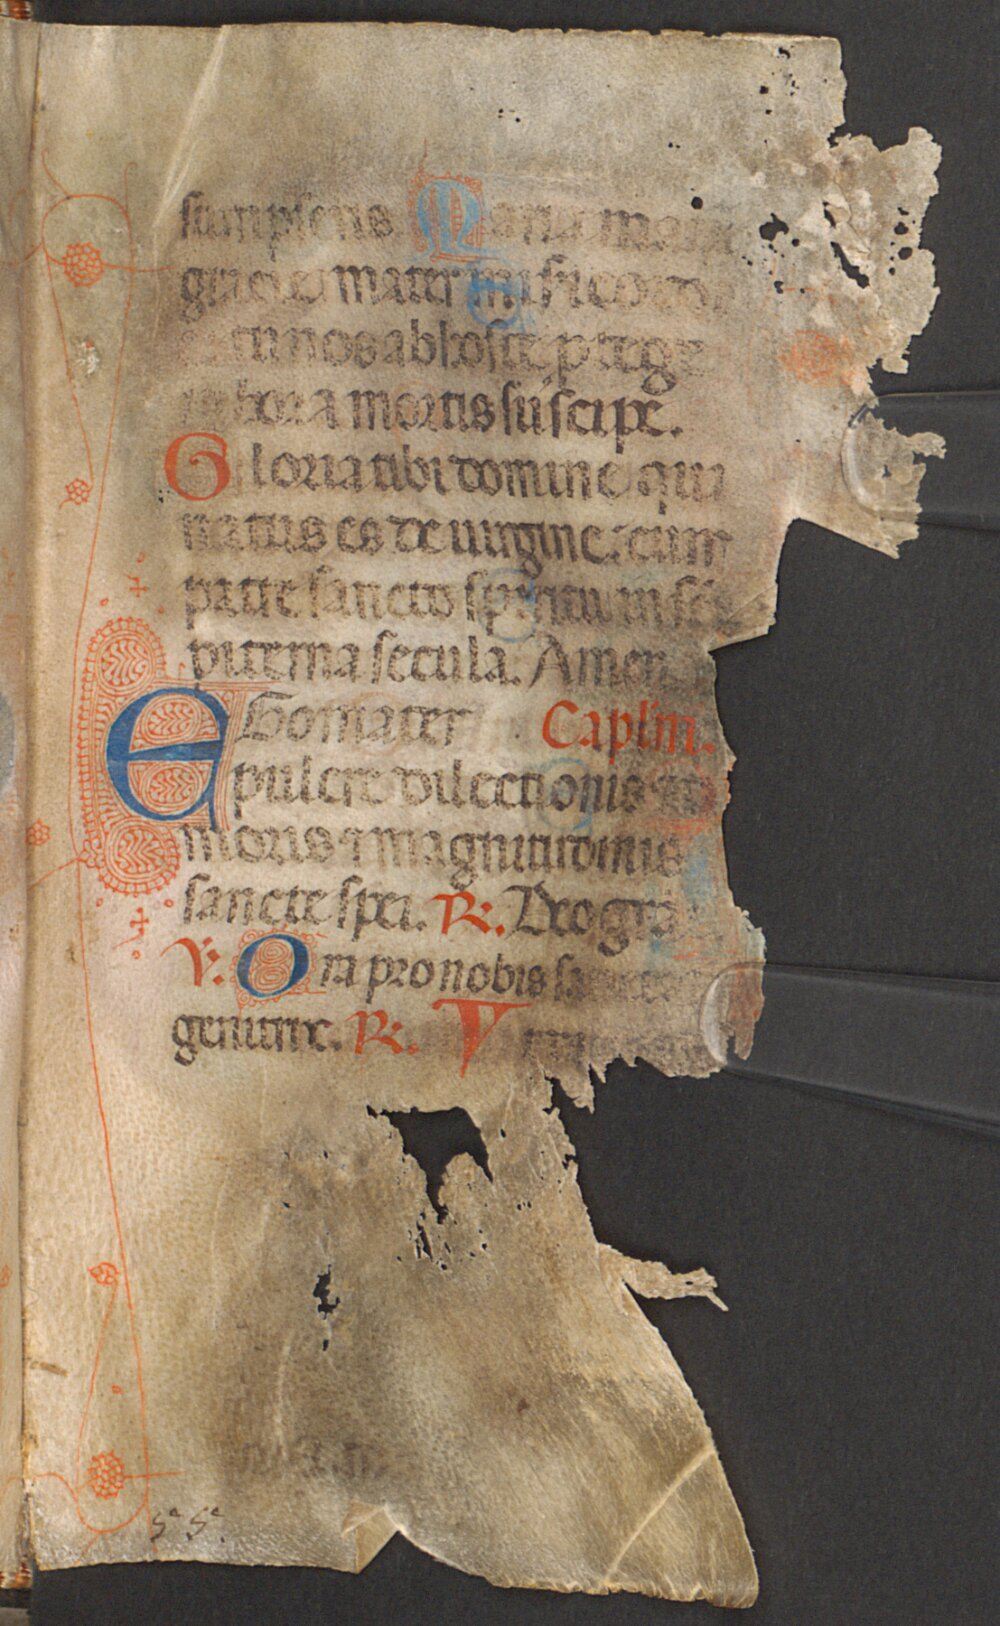 sumpseris. Maria mater
gracie mater misericord
tu nos ab hoste protege
hora mortis suscipe.
Gloria tibi domine qui
natus es de uirgine: cum
patre sancto spiritu in sem
piterna secula. Amen
Ego mater Caplm.
pulcre dilectionis et
moris ⁊ magnitudinis
sancte spei. R. Deo gra
V. Ora pro nobis sancta
genitrix. R. V